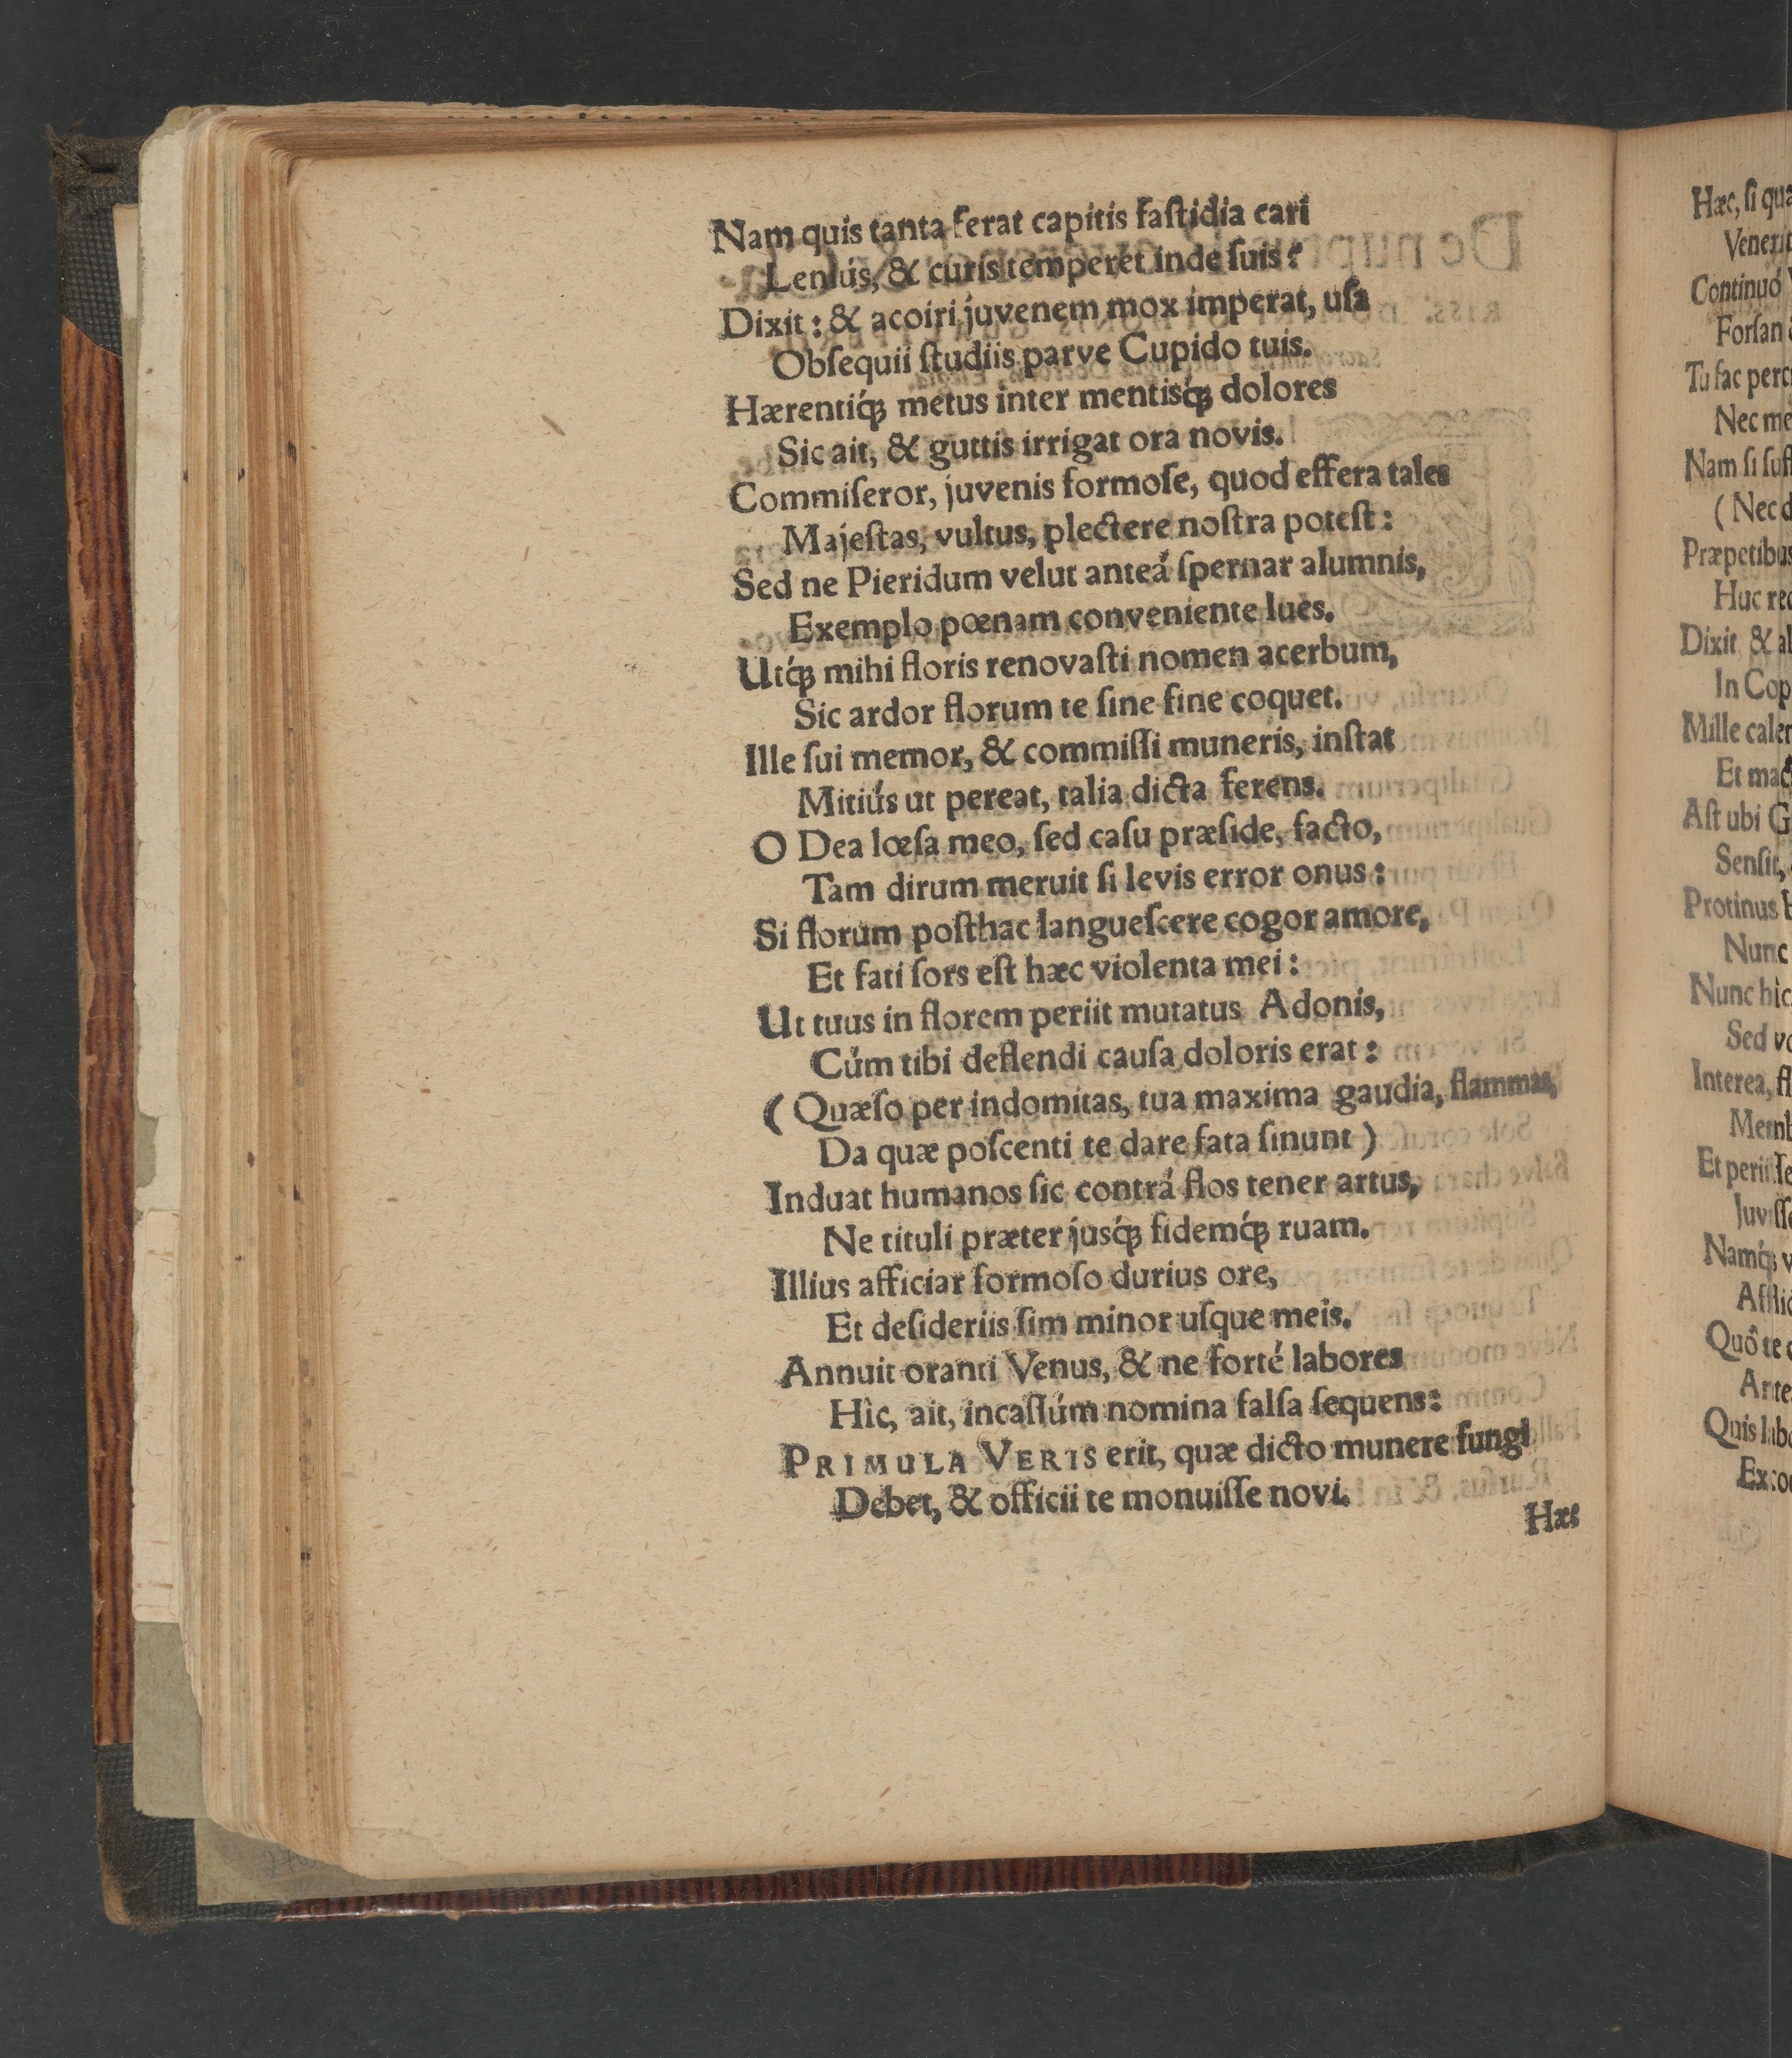 Nam quis tanta ferat capitis faſtidia cari
Leniús, & curis temperet inde ſuis?
Dixit: & acoiri juvenem mox imperat, uſa
Obſequii ſtudiis parve Cupido tuis.
Hærentiq́ꝫ metus inter mentisq́ꝫ dolores
Sic ait, & guttis irrigat ora novis.
Commiſeror, juvenis formoſe, quod effera tales
Majeſtas, vultus, plectere noſtra poteſt:
Sed ne Pieridum velut anteá ſpernar alumnis,
Exemplo pœnam conveniente lues.
Utq́ꝫ mihi floris renovaſti nomen acerbum,
Sic ardor florum te ſine fine coquet.
Ille ſui memor, & commiſſi muneris, inſtat
Mitiús ut pereat, talia dicta ferens.
O Dea lœſa meo, ſed caſu præſide, facto,
Tam dirum meruit ſi levis error onus:
Si florum poſthac langueſcere cogor amore,
Et fati ſors eſt hæc violenta mei:
Ut tuus in florem periit mutatus Adonis,
Cúm tibi deflendi cauſa doloris erat:
(Quæſo per indomitas, tua maxima gaudia, flammas,
Da quæ poſcenti te dare fata ſinunt)
Induat humanos ſic contrá flos tener artus,
Ne tituli præter jusq́ꝫ fidemq́ꝫ ruam.
Illius afficiar formoſo durius ore,
Et deſideriis ſim minor uſque meis.
Annuit oranti Venus, & ne forté labores
Hìc, ait, incaſſúm nomina falſa ſequens:
PRIMULA VERIS erit, quæ dicto munere fungi
Debet, & officii te monuiſſe novi.
Hæc
Hæc, ſi
Continuó
Forſan
Tu fac
Nec
Nam ſi
(Nec
Præpetibus
Huc
Dixit &
In
Mille
Et
Aſt ubi
Senſit,
Protinus
Nunc
Nunc hìc
Sed
Interea,
Et
Quó te
Quis